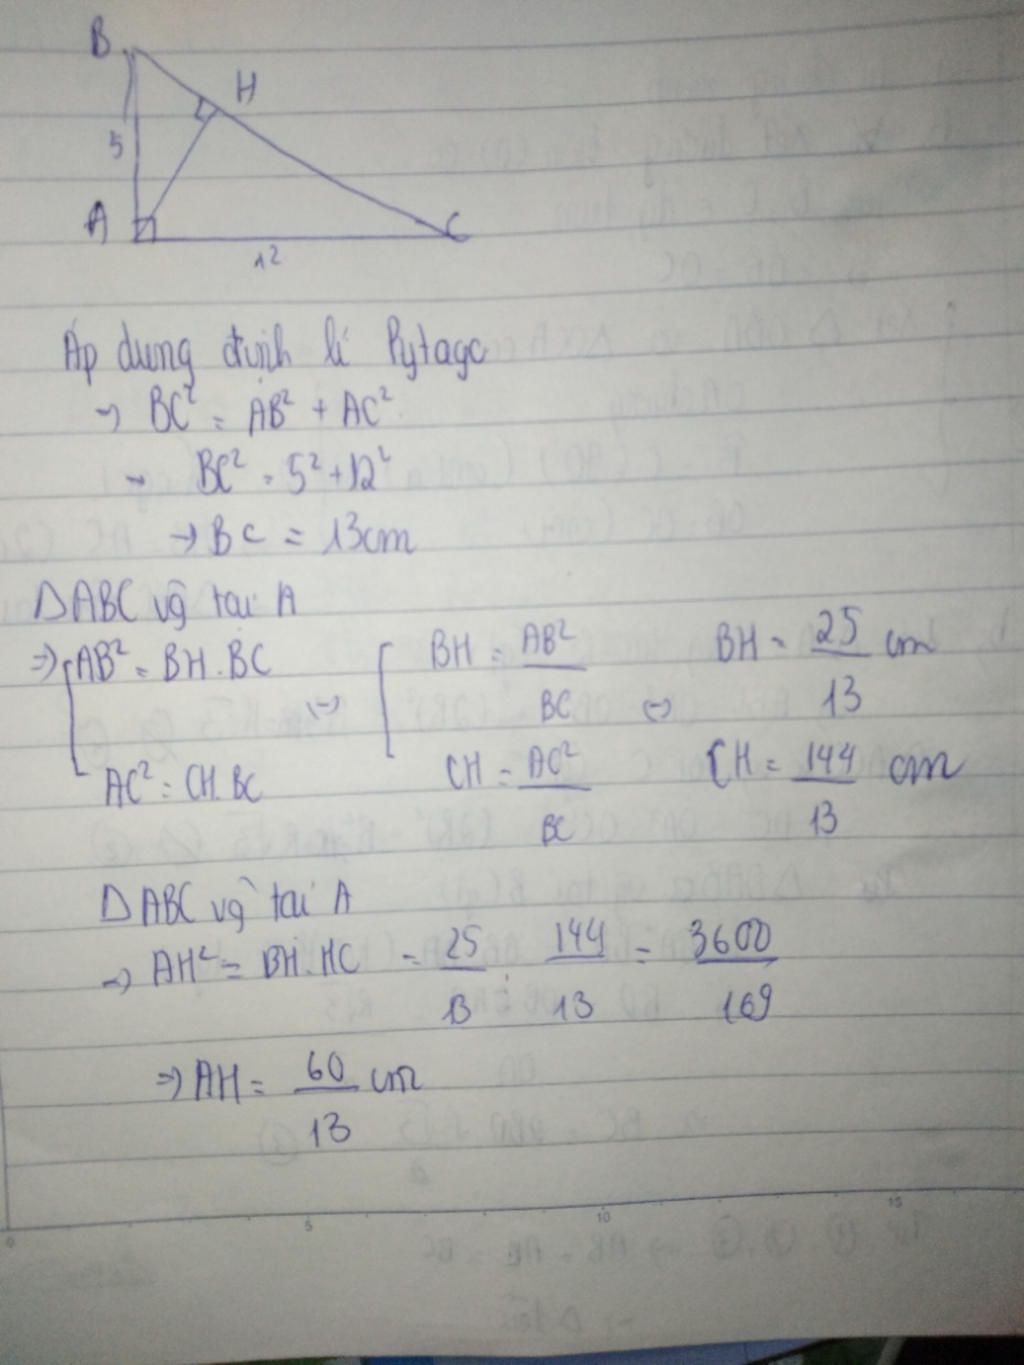 B
H
5
A
C
12
Áp dụng định lí Pytago
→ BC² = AB² + AC²
→ BC² = 5² + 12²
→ BC = 13cm
ΔABC vg tại A
⇒ [AB² = BH.BC ⇔ [BH = AB²/BC ⇔ BH = 25/13 cm
AC² = CH.BC CH = AC²/BC CH = 144/13 cm
ΔABC vg tại A
⇒ AH² = BH.HC = 25/13 . 144/13 = 3600/169
⇒ AH = 60/13 cm
0 5 10 15